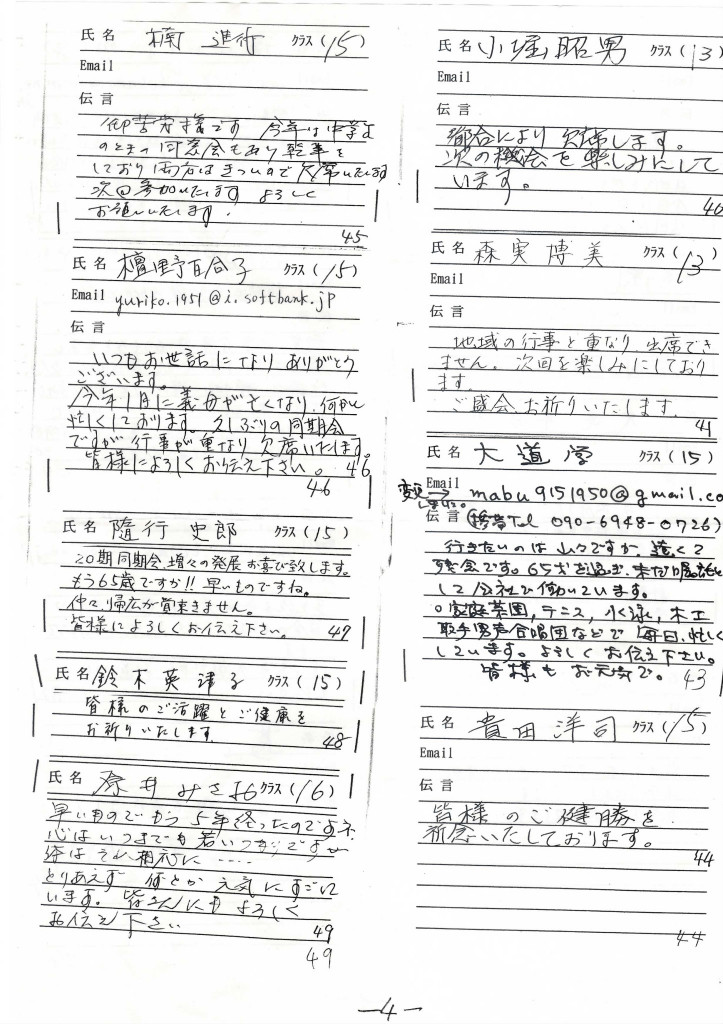 氏名 楠 進 クラス(15)
Email
伝言
御苦労様です 今年は中学校
のときの同窓会もあり幹事を
しており両方はきついので欠席いたします
次回参加いたします よろしく
お願いいたします.
45
氏名 檀野百合子 クラス(15)
Email yuriko.1951@i.softbank.jp
伝言
いつもお世話になり ありがとう
ございます。
今年1月に義母が亡くなり、何かと
忙しくしております。久しぶりの同期会
ですが行事が重なり 欠席いたします。
皆様によろしくお伝え下さい。 46
46
氏名 隨行 史郎 クラス(15)
20期同期会、増々の発展お喜び致します。
もう65歳ですか!! 早いものですね。
仲々、帰広が約束きません。
皆様によろしくお伝え下さい。 47
氏名 鈴木英津子 クラス(15)
皆様のご活躍とご健康を
お祈りいたします 48
氏名 井 みさ クラス(16)
早いものでもう 5年経ったのですネ
心はいつまでも若いつもりですが
体はそれ相応に ‥‥
とりあえず 何とか 元気にすごして
います。 皆さんにも よろしく
お伝え下さい 49
49
氏名 小堀昭男 クラス(13)
Email
伝言
都合により欠席します。
次の機会を楽しみにして
います。
40
氏名 森実博美 クラス(13
Email
伝言
地域の行事と重なり 出席でき
ません。次回を楽しみにしており
ます
ご盛会、お祈りいたします.
41
氏名 大道 学 クラス(15)
Email
変更しました。→ mabu9151950@gmail.co
伝言 (携帯Tel 090-6948-0726)
行きたいのは山々ですが、遠くて
残念です。65才を過ぎ、未だ嘱託と
して 会社で働いています。
○家庭菜園,テニス,水泳,木工
取手男声合唱団などで 毎日、忙しく
しています。よろしくお伝え下さい。
皆様も お元気で。 43
氏名 貴田洋司 クラス(15)
Email
伝言
皆様のご健勝を
祈念いたしております。
44
44
—4—